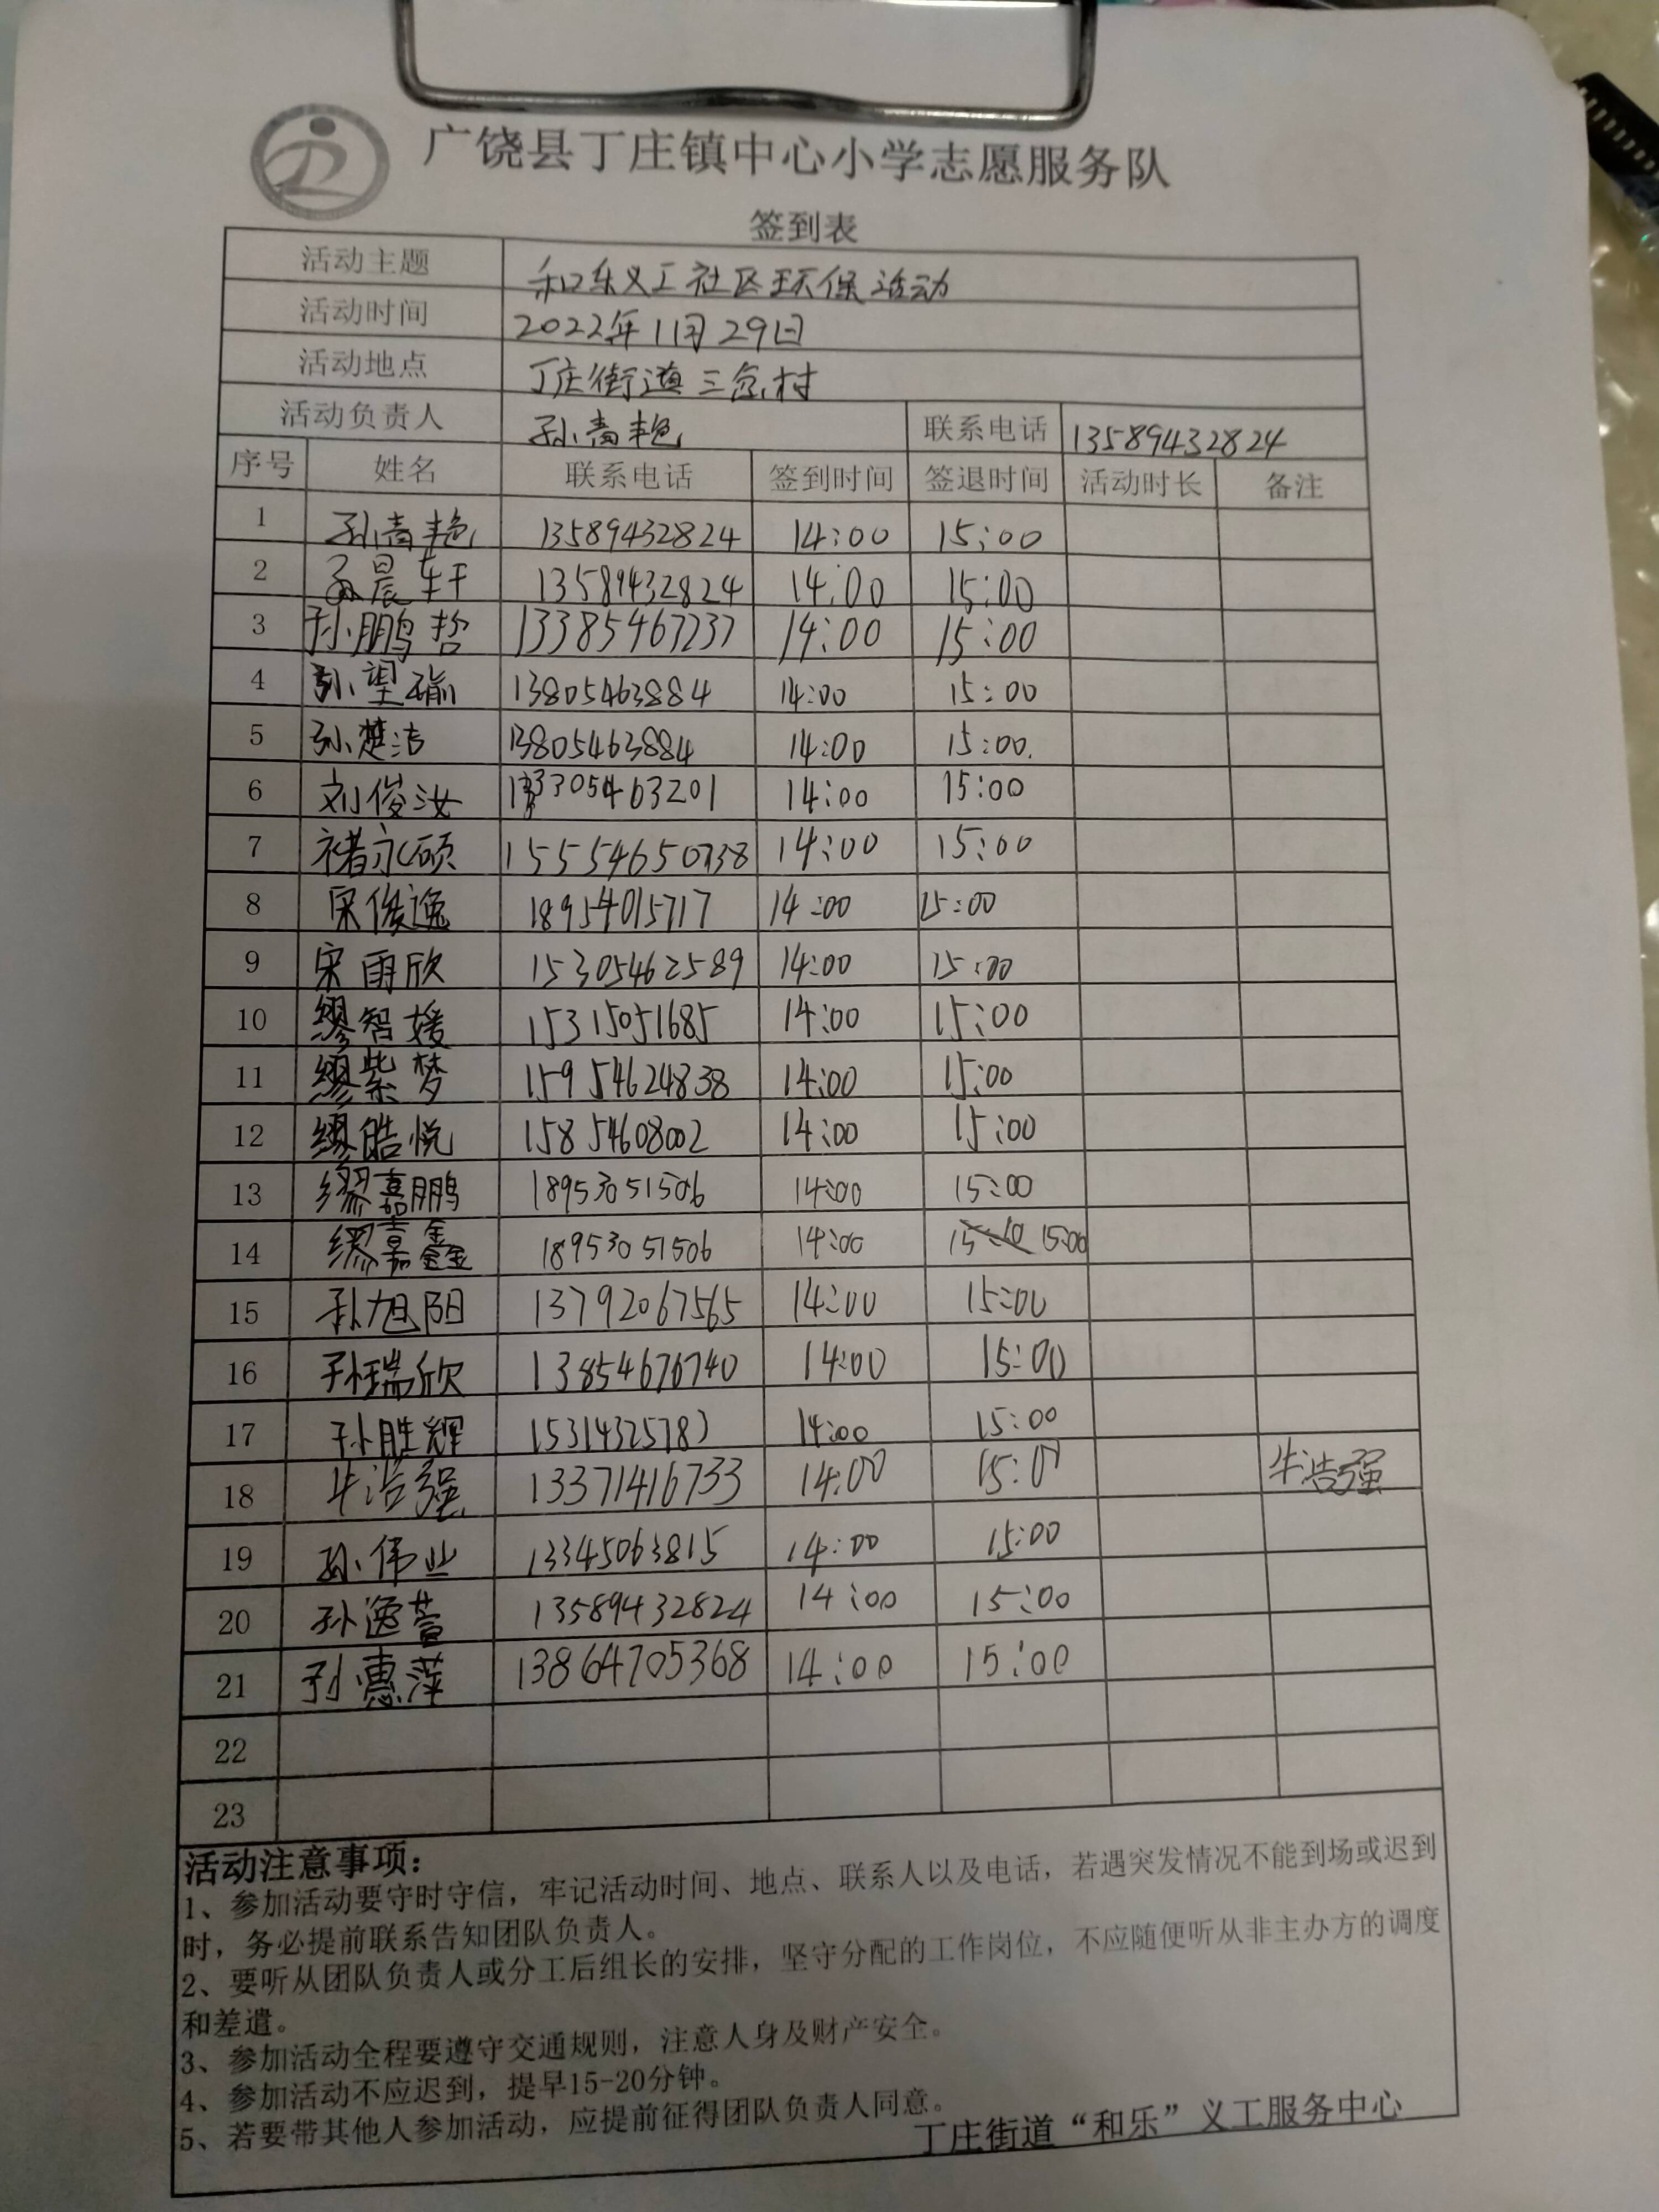 广饶县丁庄镇中心小学志愿服务队
签到表
活动主题 和乐义工社区环保活动
活动时间 2022年11月29日
活动地点 丁庄街道三岔村
活动负责人 孙青艳 联系电话 13589432824
序号 姓名 联系电话 签到时间 签退时间 活动时长 备注
1 孙青艳 13589432824 14:00 15:00
2 孟晨轩 13589432824 14:00 15:00
3 孙鹏哲 13385467237 14:00 15:00
4 孙望瑜 13805463884 14:00 15:00
5 孙楚洁 13805463884 14:00 15:00
6 刘俊汝 14:00 15:00
7 褚永硕 15554650738 14:00 15:00
8 宋俊逸 18954015717 14:00 15:00
9 宋雨欣 15305462589 14:00 15:00
10 缪智媛 15315051685 14:00 15:00
11 缪紫梦 15954624838 14:00 15:00
12 缪皓悦 15854608002 14:00 15:00
13 缪嘉鹏 18953051506 14:00 15:00
14 缪嘉鑫 18953051506 14:00 15:00
15 孙旭阳 13792067565 14:00 15:00
16 孙瑞欣 13854676740 14:00 15:00
17 孙胜辉 14:00 15:00
18 牛浩强 13371416733 14:00 15:00 牛浩强
19 孙伟业 13345063815 14:00 15:00
20 孙逸萱 13589432824 14:00 15:00
21 孙惠萍 13864705368 14:00 15:00
22
23
活动注意事项:
1、参加活动要守时守信，牢记活动时间、地点、联系人以及电话，若遇突发情况不能到场或迟到
时，务必提前联系告知团队负责人。
2、要听从团队负责人或分工后组长的安排，坚守分配的工作岗位，不应随便听从非主办方的调度
和差遣。
3、参加活动全程要遵守交通规则，注意人身及财产安全。
4、参加活动不应迟到，提早15-20分钟。
5、若要带其他人参加活动，应提前征得团队负责人同意。
丁庄街道“和乐”义工服务中心